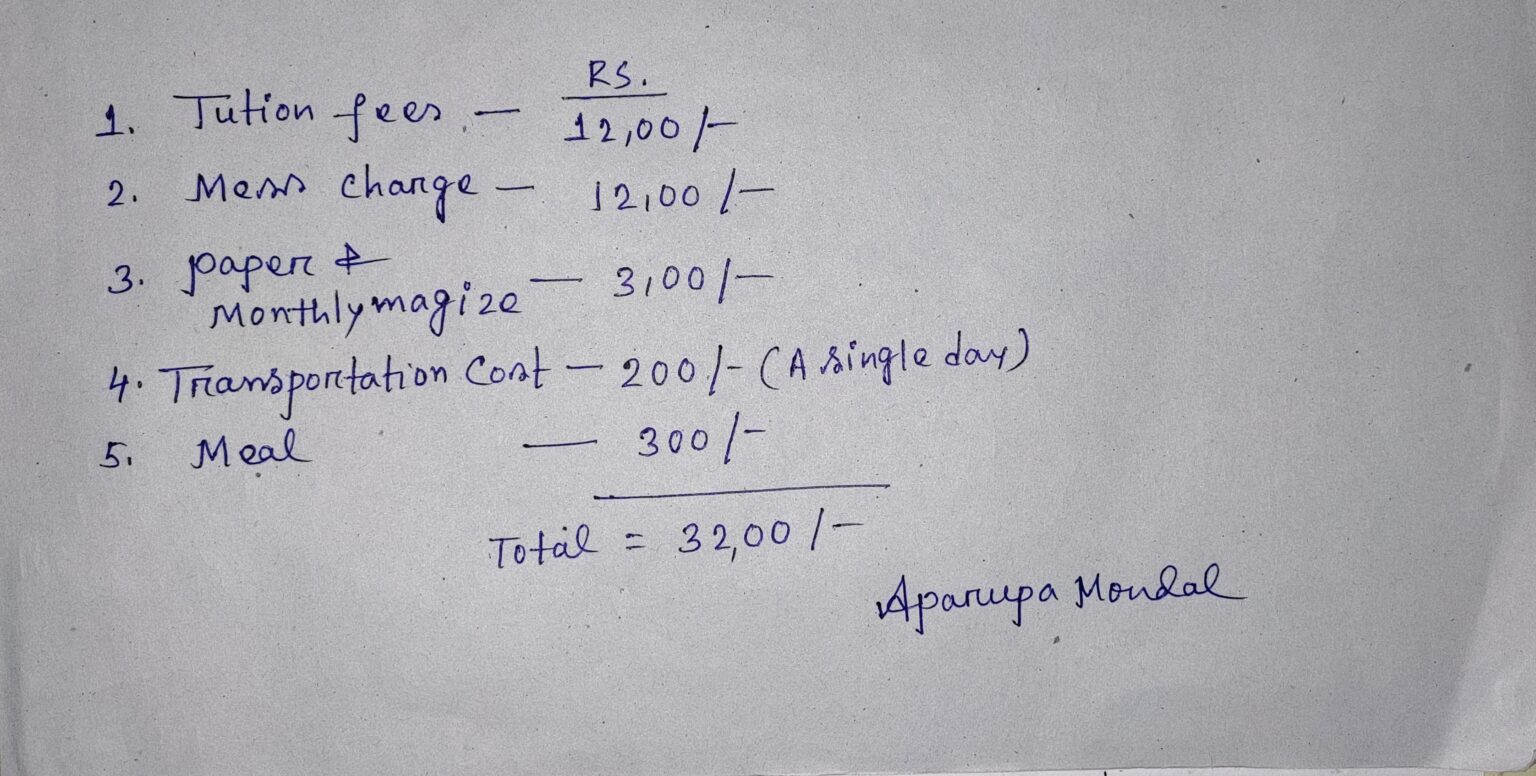 RS.
1. Tution fees - 12,00/-
2. Mess charge - 12,00/-
3. paper &
Monthly magize - 3,00/-
4. Transportation Cost - 200/- (A single day)
5. Meal - 300/-
Total = 32,00/-
Aparupa Mondal